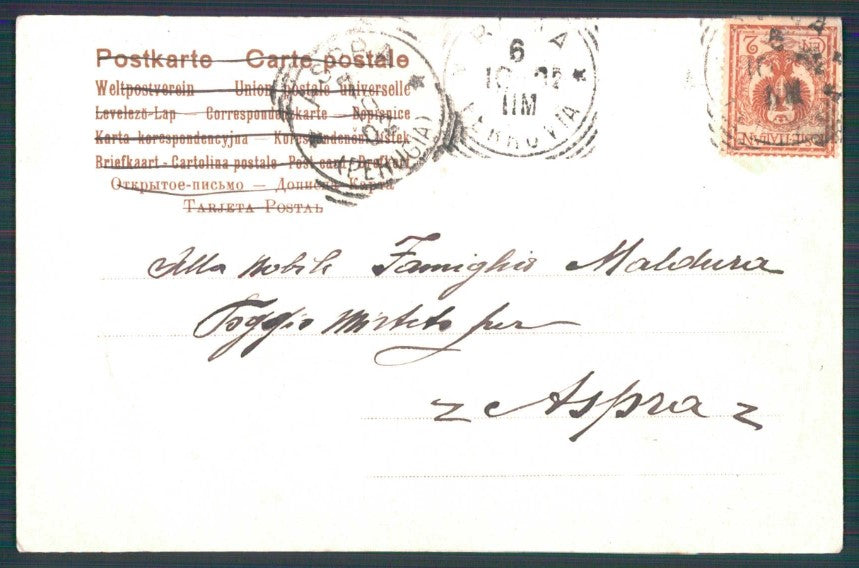 Postkarte — Carte postale
Weltpostverein — Union postale universelle
Levelező-Lap — Correspondenzkarte — Dopisnice
Karta korespondencyjna — Korespondenční lístek
Briefkaart - Cartolina postale - Post card
Открытое-письмо —
TARJETA POSTAL
(PERUGIA)
6
FERROVIA
2
POSTE ITALIANE
Alla Nobile Famiglia Maldura
Poggio Mirteto per
Aspra